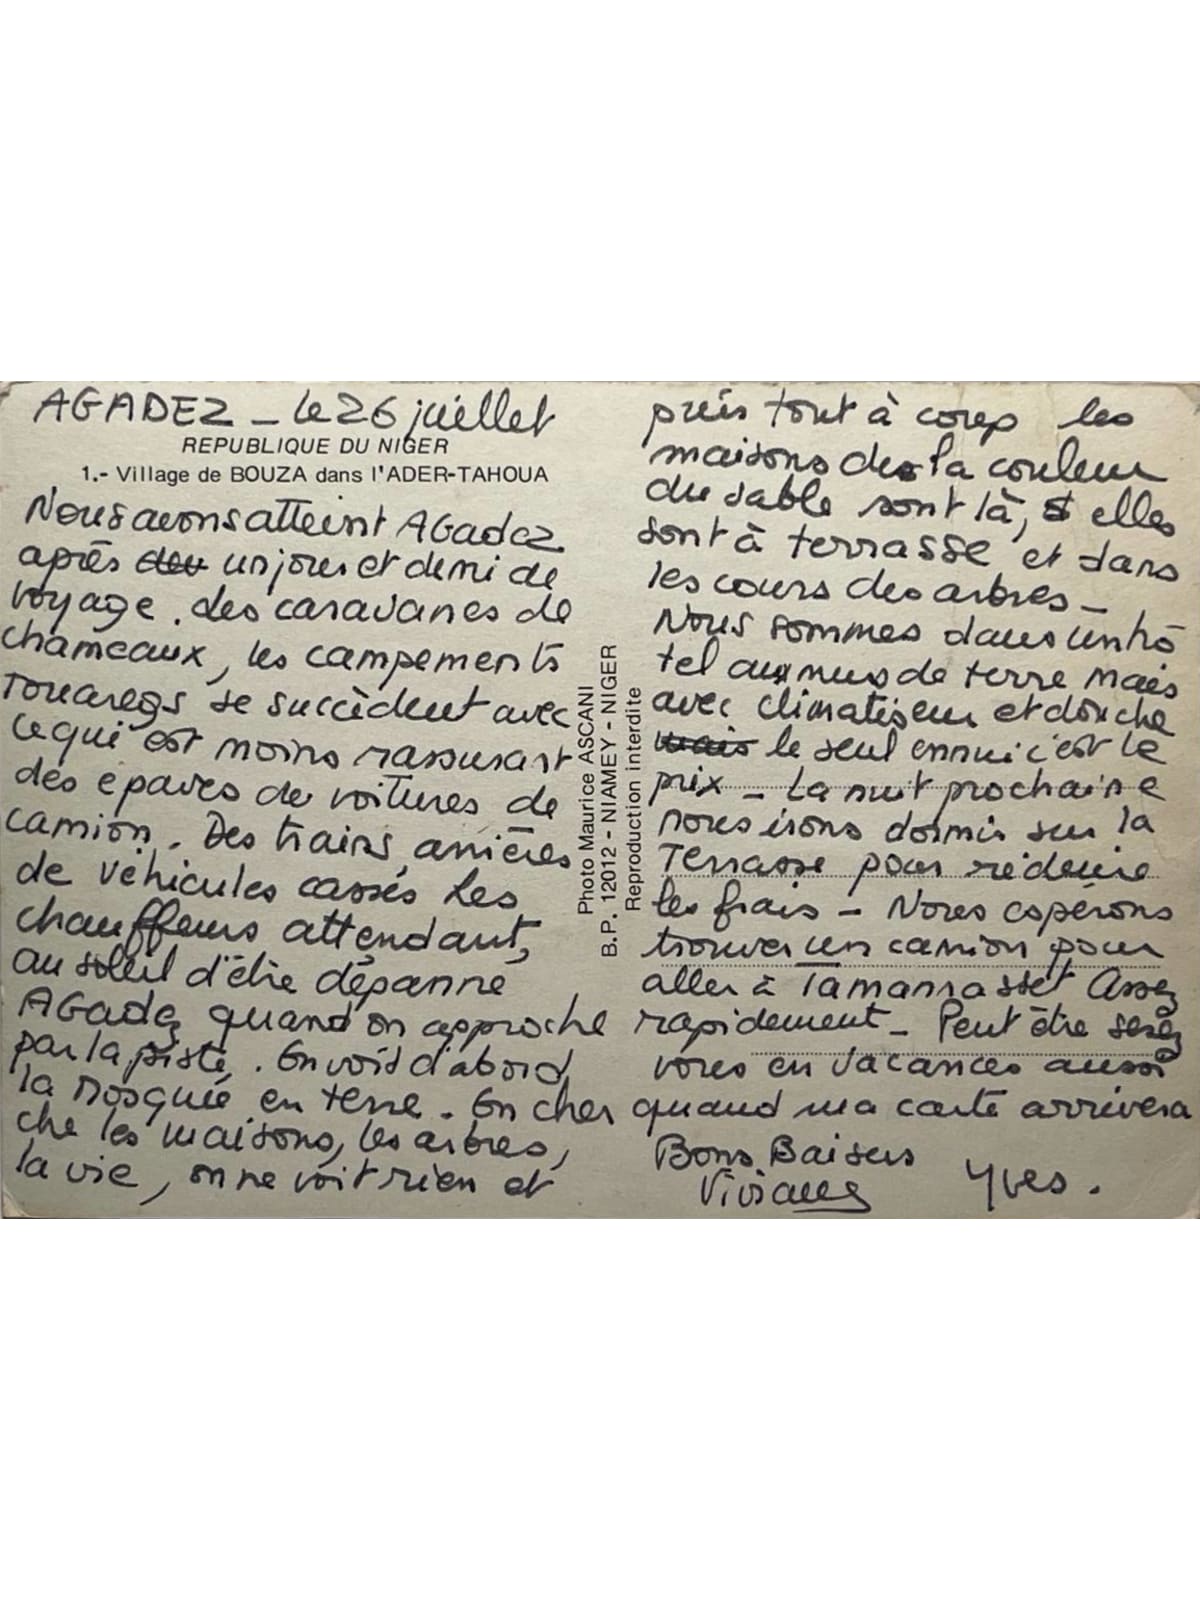 AGADEZ - le 26 juillet
REPUBLIQUE DU NIGER
1.- Village de BOUZA dans l'ADER-TAHOUA
Nous avons atteint AGadez
après deu un jour et demi de
voyage. des caravanes de
chameaux, les campements
Touaregs se succèdent avec
ce qui est moins rassurant
des épaves de voitures de
camion. Des trains arrières
de véhicules cassés les
chauffeurs attendant,
au soleil d'être dépanné
AGadez quand on approche
par la piste. On voit d'abord
la Mosquée en terre. On cher
che les maisons, les arbres,
la vie, on ne voit rien et
Photo Maurice ASCANI
B.P. 12012 - NIAMEY - NIGER
Reproduction interdite
puis tout à coup les
maisons de la couleur
du sable sont là, elles
sont à terrasse et dans
les cours des arbres -
Nous sommes dans un hô
tel aux murs de terre mais
avec climatiseur et douche
mais le seul ennui c'est le
prix - La nuit prochaine
nous irons dormir sur la
Terrasse pour réduire
les frais - Nous espérons
trouver un camion pour
aller à Tamanrasset Assez
rapidement - Peut être serez
vous en vacances aussi
quand ma carte arrivera
Bons Baisers
Viviane Yves.